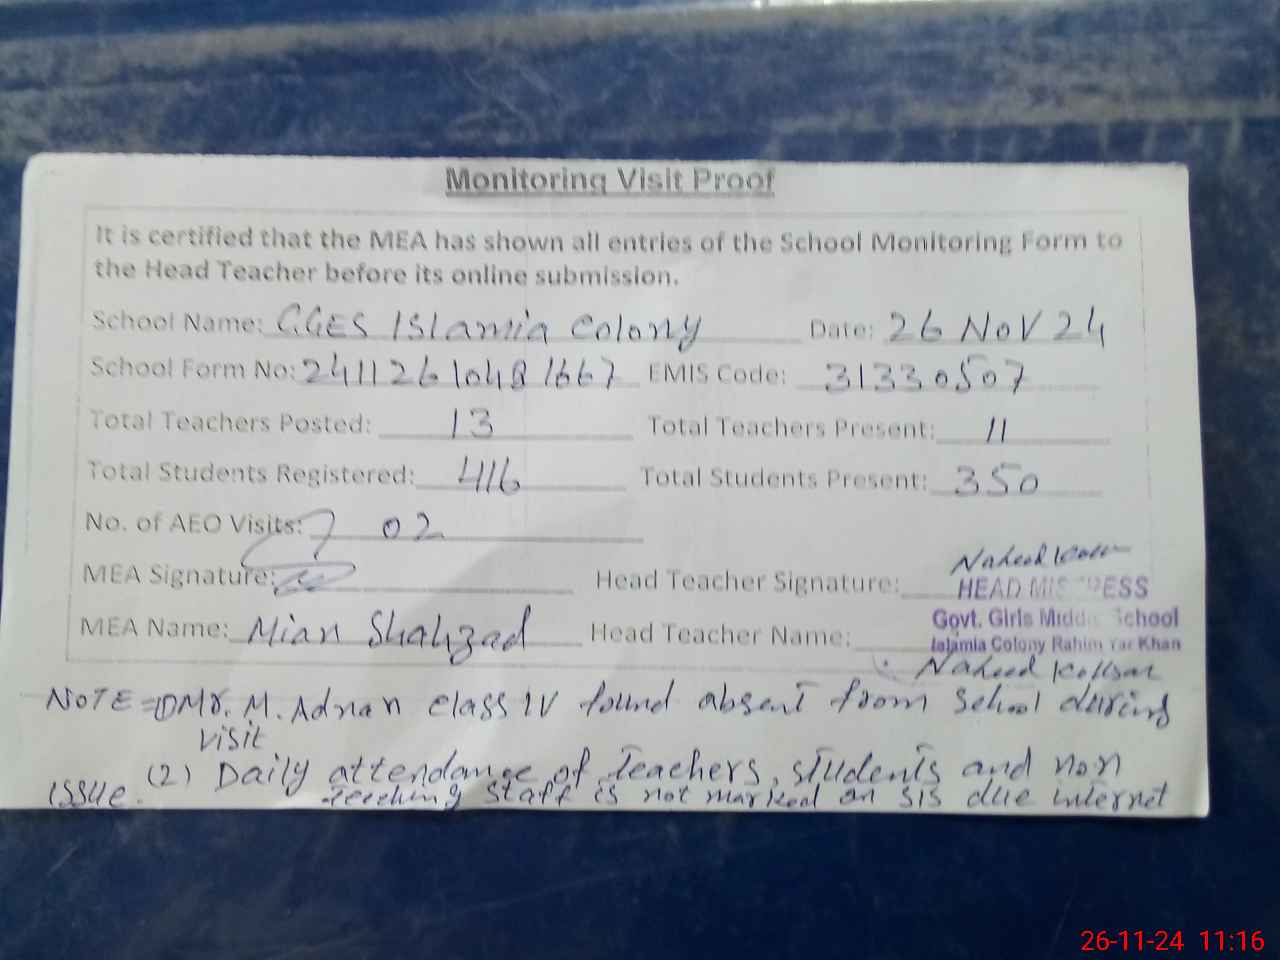 Monitoring Visit Proof
It is certified that the MEA has shown all entries of the School Monitoring Form to
the Head Teacher before its online submission.
School Name: GGES Islamia Colony Date: 26 Nov 24
School Form No: 24112610481667 EMIS Code: 31330507
Total Teachers Posted: 13 Total Teachers Present: 11
Total Students Registered: 416 Total Students Present: 350
No. of AEO Visits: 02
MEA Signature: Head Teacher Signature: Naheed Kausar
HEAD MISTRESS
Govt. Girls Middle School
Islamia Colony Rahim Yar Khan
MEA Name: Mian Shahzad Head Teacher Name:
Naheed Kousar
NOTE = (1) Mr. M. Adnan class IV found absent from school during
visit
(2) Daily attendance of Teachers, students and non
teaching staff is not marked on SIS due internet
issue.
26-11-24 11:16